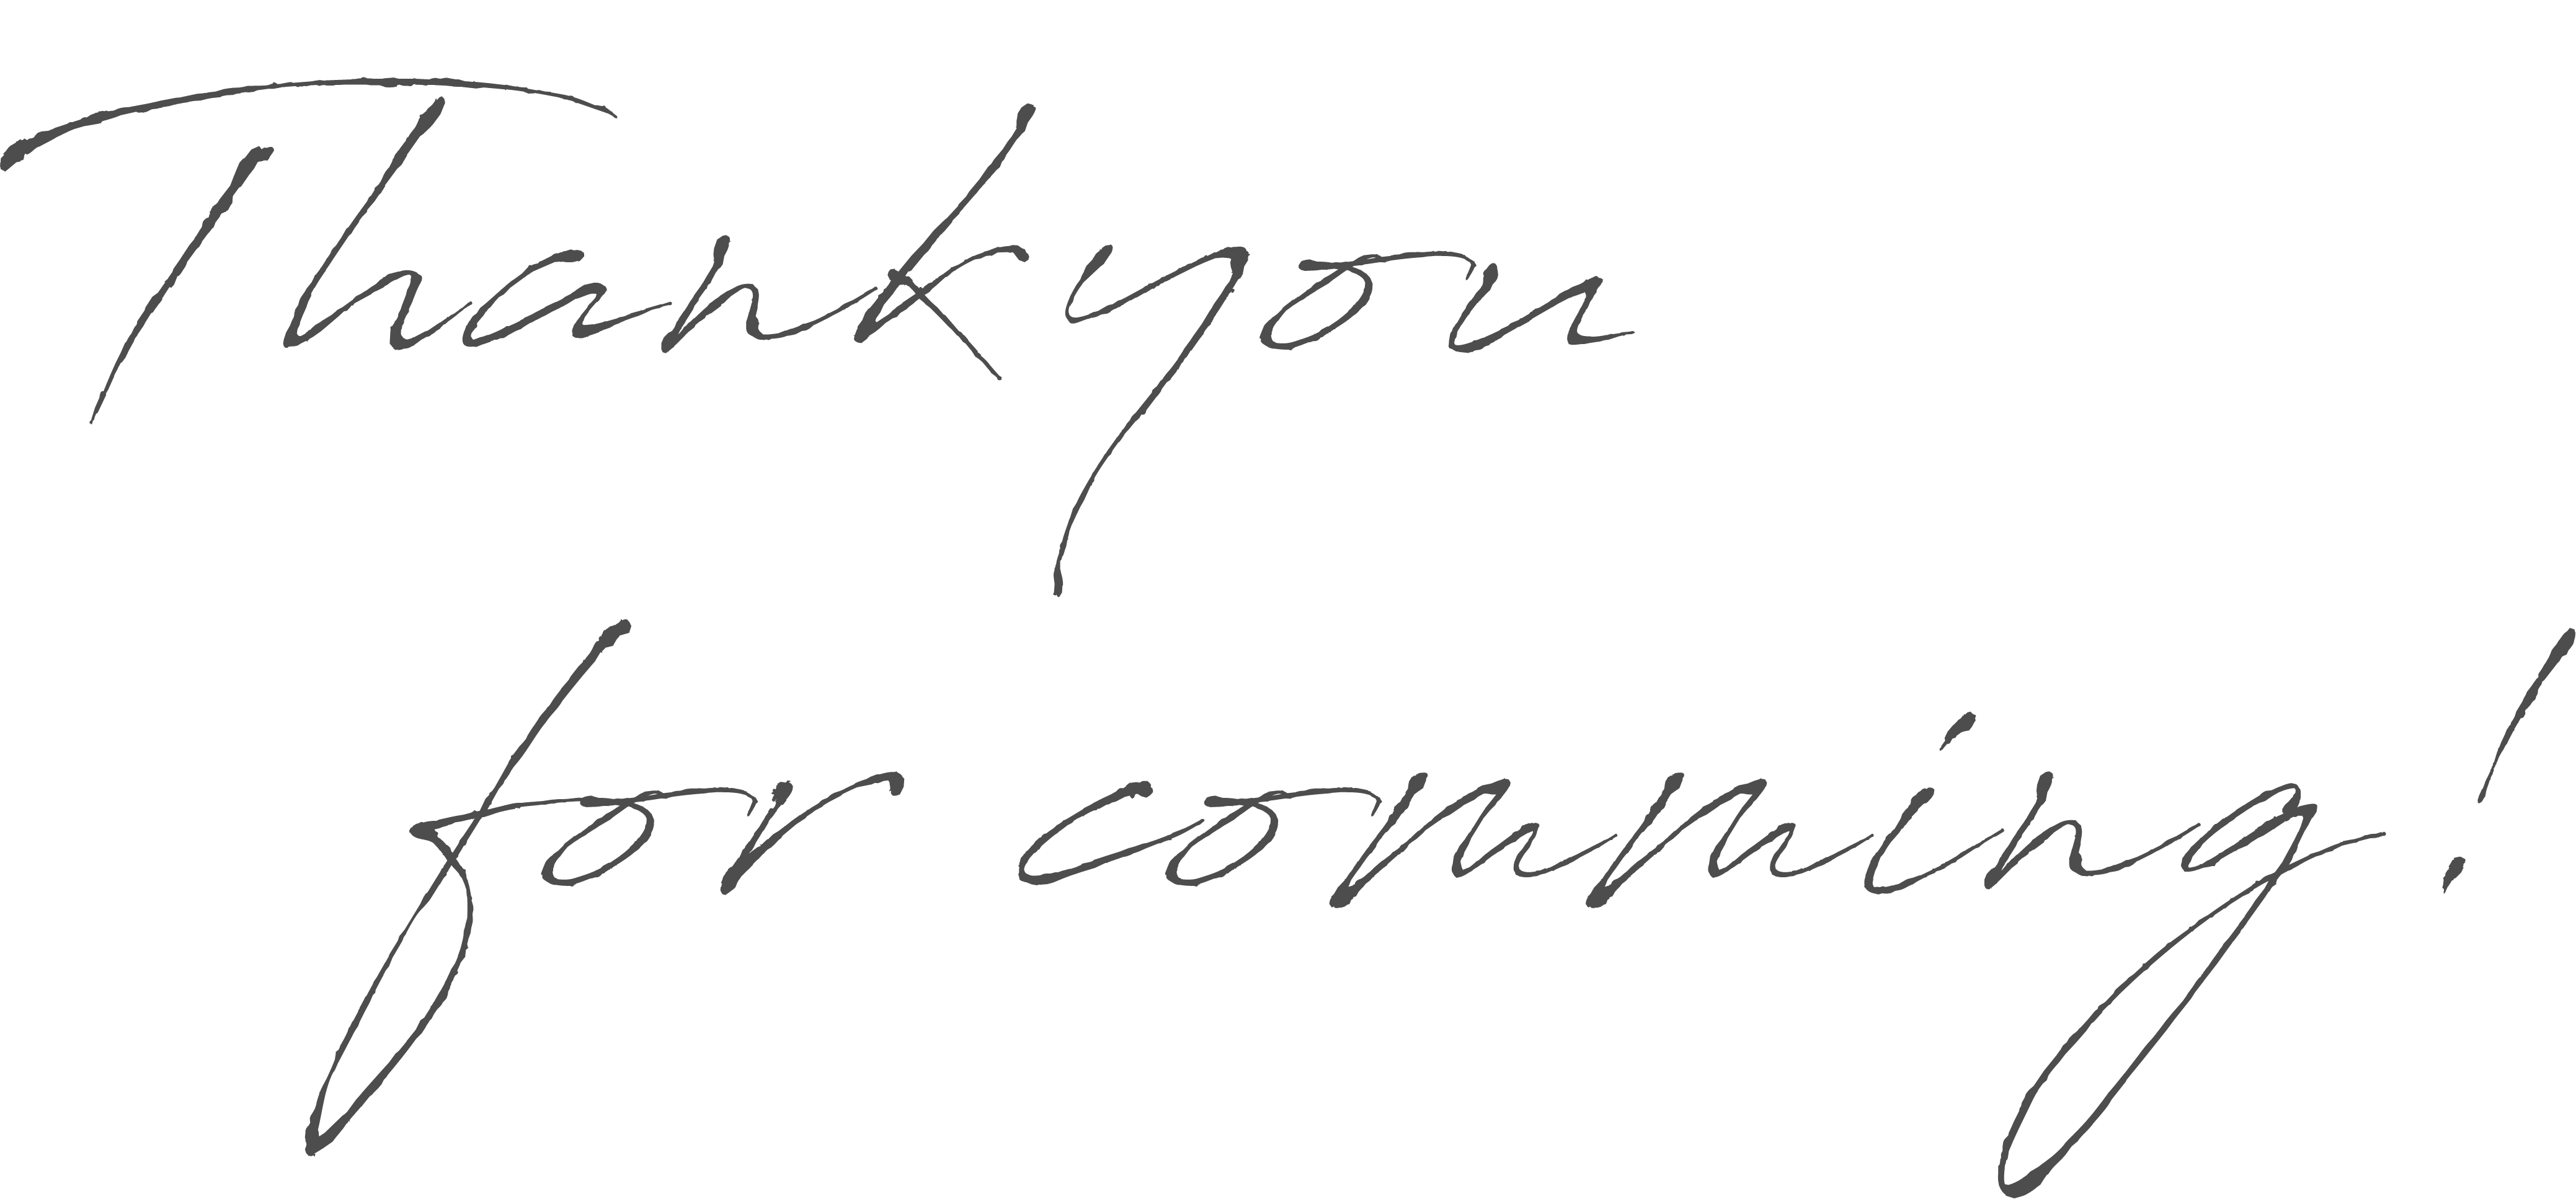 Thank you
for comming!